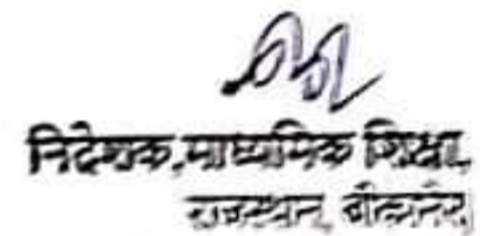 निदेशक, माध्यमिक शिक्षा,
राजस्थान, बीकानेर